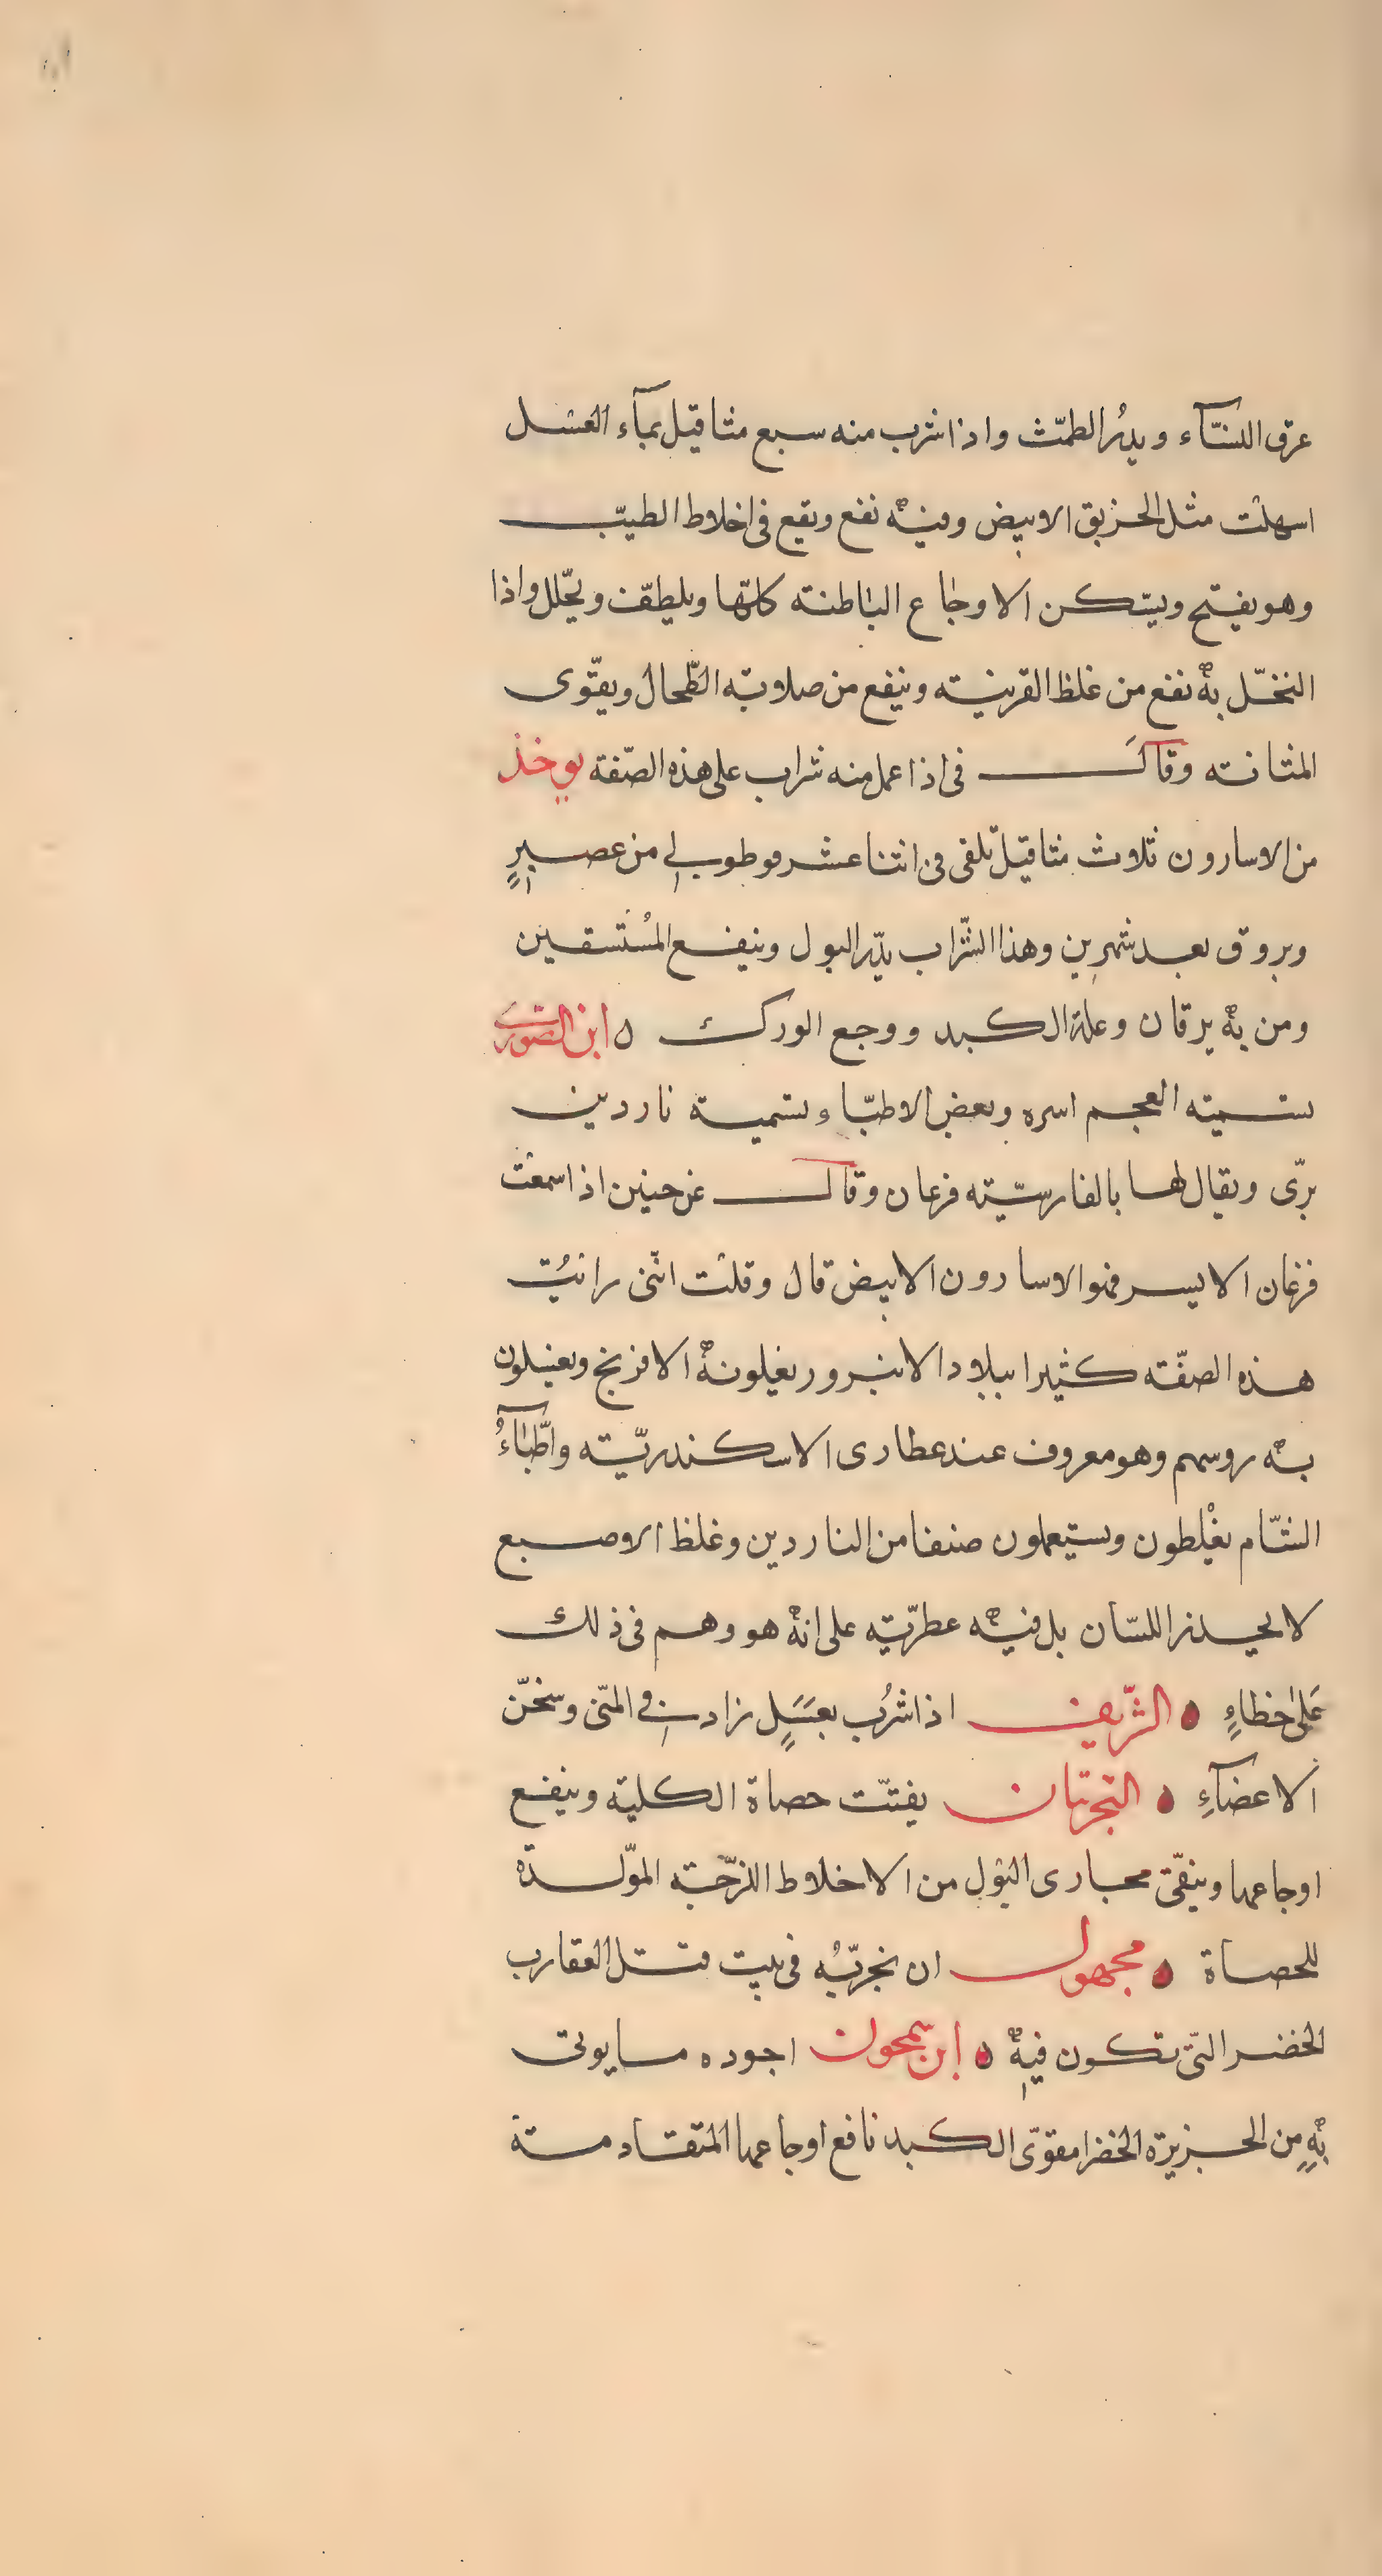 عرق النسآء ويدرُ الطمّث واذا شرب منه سبع مثاقيل بمآء العسل
اسهلت مثل الخربق الابيض ومنهٔ نفع ويقع فى اخلاط الطيّب
وهو يفتح ويسّكن الاوجاع الباطنته كلّها ويلطفّ ويحّلل واذا
النخّل بهٔ نفع من غلظ القرينته وينفع من صلابته الطّحال ويقّوى
المثانته وقاَل فى اذا عمل منه شراب على هذه الصّفة يوخذ
من الاسارون ثلاث مثاقيل تلقى فى اثنا عشر قوطولى من عصيرٍ
ويروق بعد شهرين وهذا الشّراب يدّر البول وينفع المُستسقين
ومن بهٔ يرقان وعلة الكبد ووجع الورك ٥ ابن الصّورى
يسميته العجم اسره وبعض الاطبّاء يسميه ناردين
برّى ويقال لها بالفارسيّته فرعان وقال عن حنين اذا سمعت
فرعان الايسر فهو الاسارون الابيض قال وقلت انّى رائيُت
هذه الصفّته كثيرا ببلاد الانبرور يغلونهٔ الافرنج ويغسلون
بهٔ روسهم وهو معروف عند عطارى الاسكندريّته واطّباءُ
الشّام يغْلطون ويستعملون صنفا من الناردين وغلظ الاصبع
لا يحيذر اللسّان بل فيهٔ عطريّته على انهٔ هو وهم فى ذلك
عَلى خطاءٍ ٥ الشّريف اذا شرُب بعسَلٍ زاد فى المنّى وسخنّ
الاعضآءِ ٥ التجربتان يفتتّ حصاة الكلية وينفع
اوجاعها وينقّى مجارى البول من الاخلاط اللزجّته الموّلدة
للحصاة ٥ مجهول ان نجربّهُ فى بيت قتل العقارب
الخضر التّى تكون فيهٔ ٥ ابن سمحون اجوده ما يوتى
بهٔ من الجزيرة الخضرا مقوّى الكبد نافع اوجاعها المتقادمة